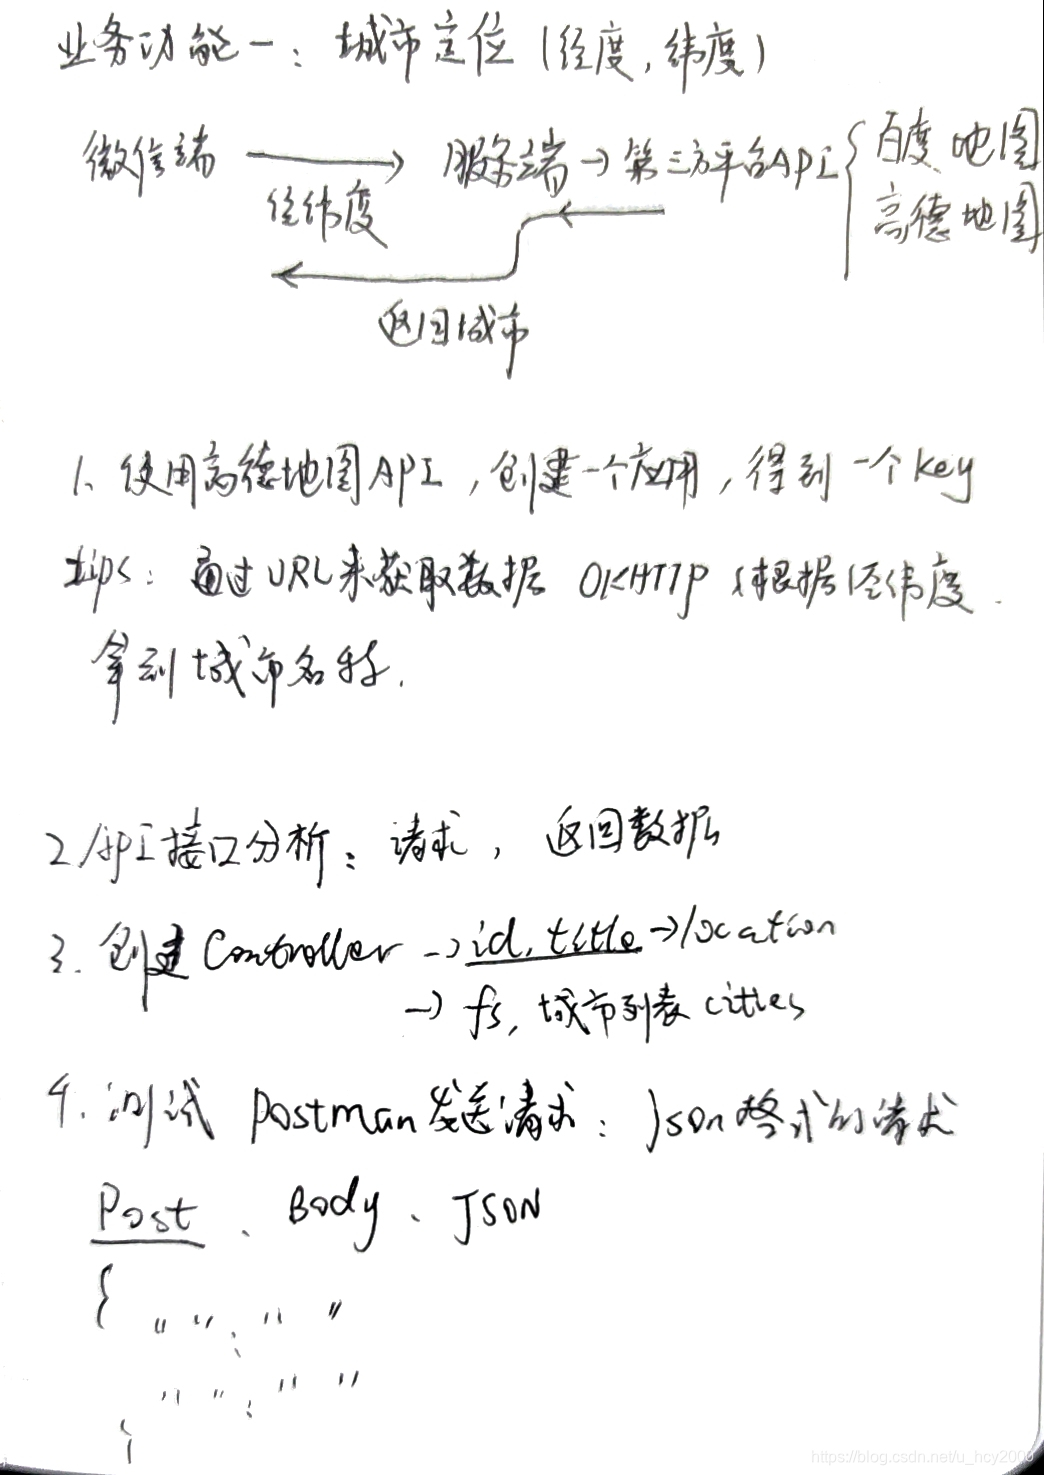 业务功能一：城市定位（经度，纬度）
微信端 → 服务端 → 第三方平台API { 百度地图
高德地图
经纬度
返回城市
1、使用高德地图API，创建一个应用，得到一个key
tips：通过URL来获取数据 OKHTTP 根据经纬度
拿到城市名称.
2 API接口分析：请求，返回数据
3. 创建Controller → id, title → location
→ fs, 城市列表cities
4. 测试 Postman发送请求：Json格式的请求
Post、Body、JSON
{
" " : " "
" " : " "
}
https://blog.csdn.net/u_hcy2000